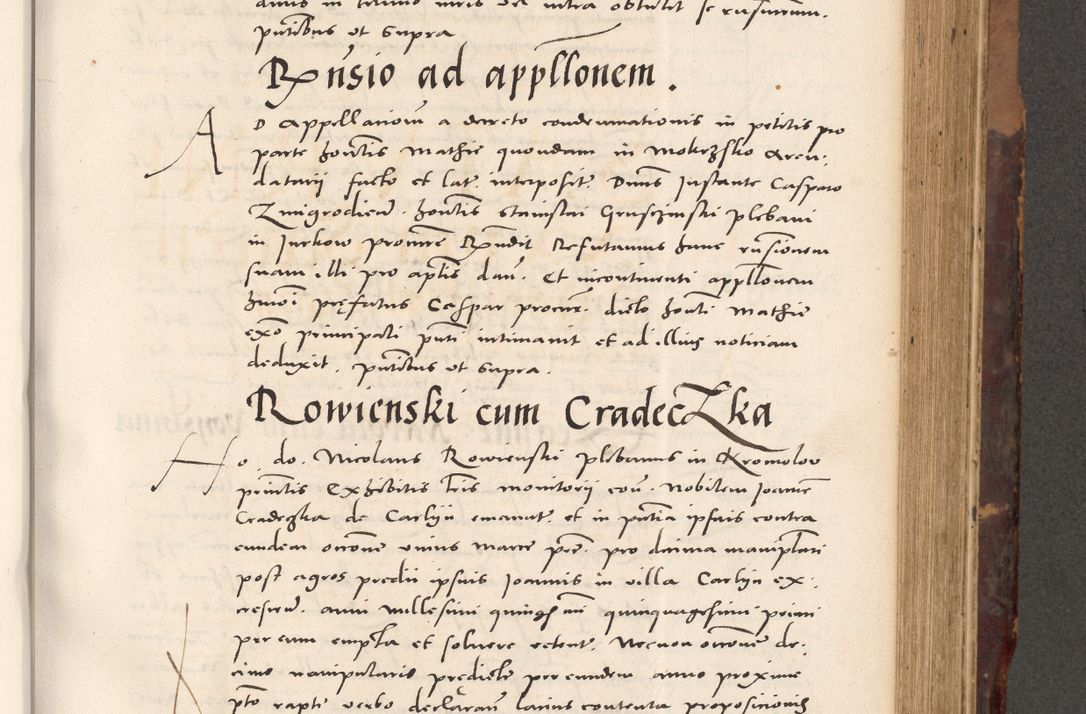 putibus ut supra
Rnsio ad appllonem.
AD Appellacioni a decreto condemnationis in petitis pro
parte honstis Mathie quondam in Mokrzsko Aren.
datarii facto et lat. interposit. Dnus Instante Casparo
Zmigrodien. honstis Stanislai Gruszinski plebani
in Jurkow procure Rndit Refutamus hanc rnsionem
suam illi pro aptis dan. Et incontinenti appllonem
hmoi prefatus Caspar procur. dicto honsti Mathie
exo principali pnti intimavit et ad illius noticiam
deduxit. putibus ut supra.
Rowienski cum CradecZka
Ho. do. Nicolaus Rowienski plebanus in Kromolow
prmtis Exhibitis lris monitorii con. Nobilem Joannem
Cradeczka de Carlyn emanat. et in pntia ipsius contra
eundem occone unius Marce pre. pro decima manipulari
post agros predii ipsius Joannis in villa Carlyn ex.
crescen. anni millesimi quingmi quinquagesimi primi
per eum empta et solvere reten. Necnon occone de.
cime manipularis predicte per eundem anno proxime
pto rapte verbo declarans lacius contenta proposicionis